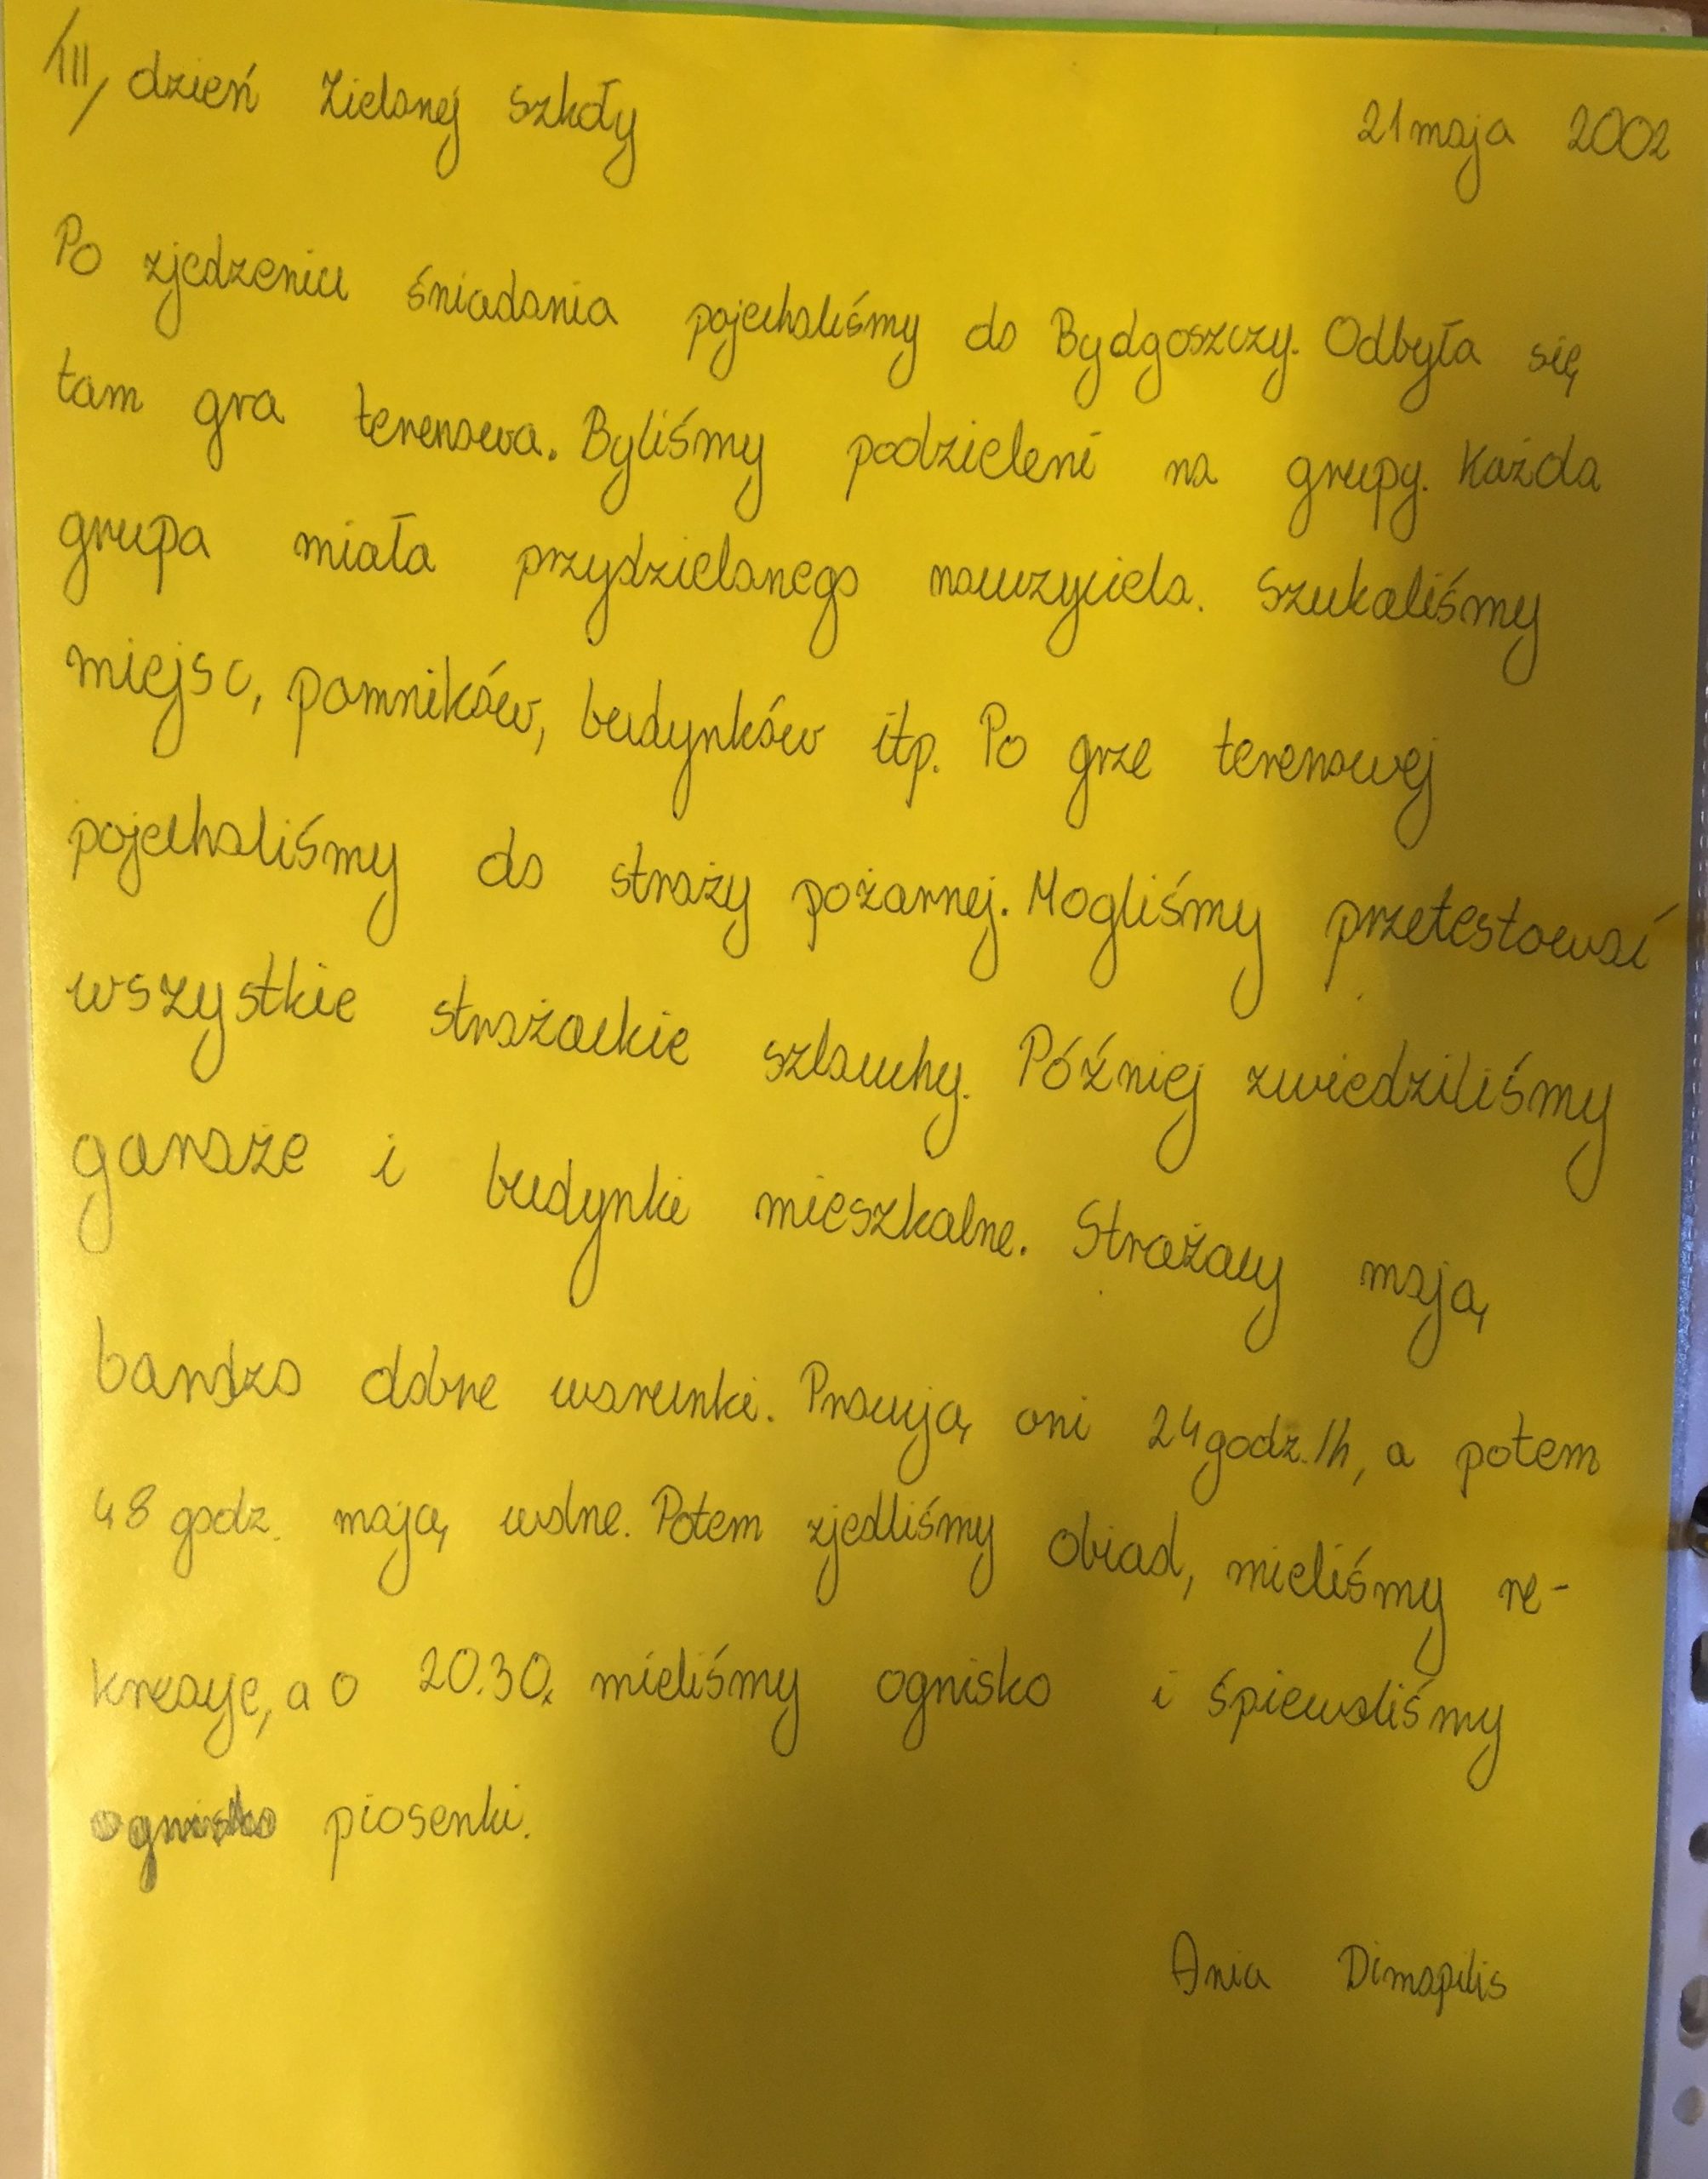 III, dzień Zielonej Szkoły 21 maja 2002
Po zjedzeniu śniadania pojechaliśmy do Bydgoszczy. Odbyła się
tam gra terenowa. Byliśmy podzieleni na grupy. Każda
grupa miała przydzielonego nauczyciela. Szukaliśmy
miejsc, pomników, budynków itp. Po grze terenowej
pojechaliśmy do straży pożarnej. Mogliśmy przetestować
wszystkie strażackie szlauchy. Później zwiedziliśmy
garaże i budynki mieszkalne. Strażacy mają
bardzo dobre warunki. Pracują oni 24godz./h, a potem
48 godz. mają wolne. Potem zjedliśmy obiad, mieliśmy re-
kreację, a o 20.30. mieliśmy ognisko i śpiewaliśmy
ognisko piosenki.
Ania Dimopilis